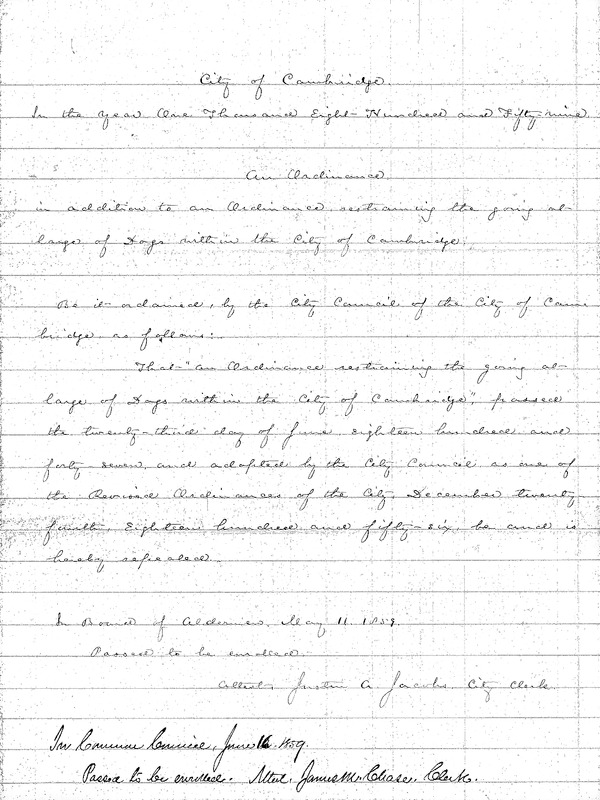 City of Cambridge.
In the year One Thousand Eight Hundred and Fifty-nine.
An Ordinance
in addition to an Ordinance restraining the going at
large of Dogs within the City of Cambridge.
Be it ordained, by the City Council of the City of Cam
bridge, as follows:
That "an Ordinance restraining the going at
large of Dogs within the City of Cambridge", passed
the twenty-third day of June, Eighteen hundred and
forty-seven, and adopted by the City Council as one of
the Revised Ordinances of the City, December twenty-
fourth, Eighteen hundred and fifty-six, be and is
hereby repealed.
In Board of Aldermen, May 11. 1859
Passed to be enrolled.
Attest, Justin A. Jacobs, City Clerk.
In Common Council, June 1859.
Passed to be enrolled. Attest, James M. Chase, Clerk.